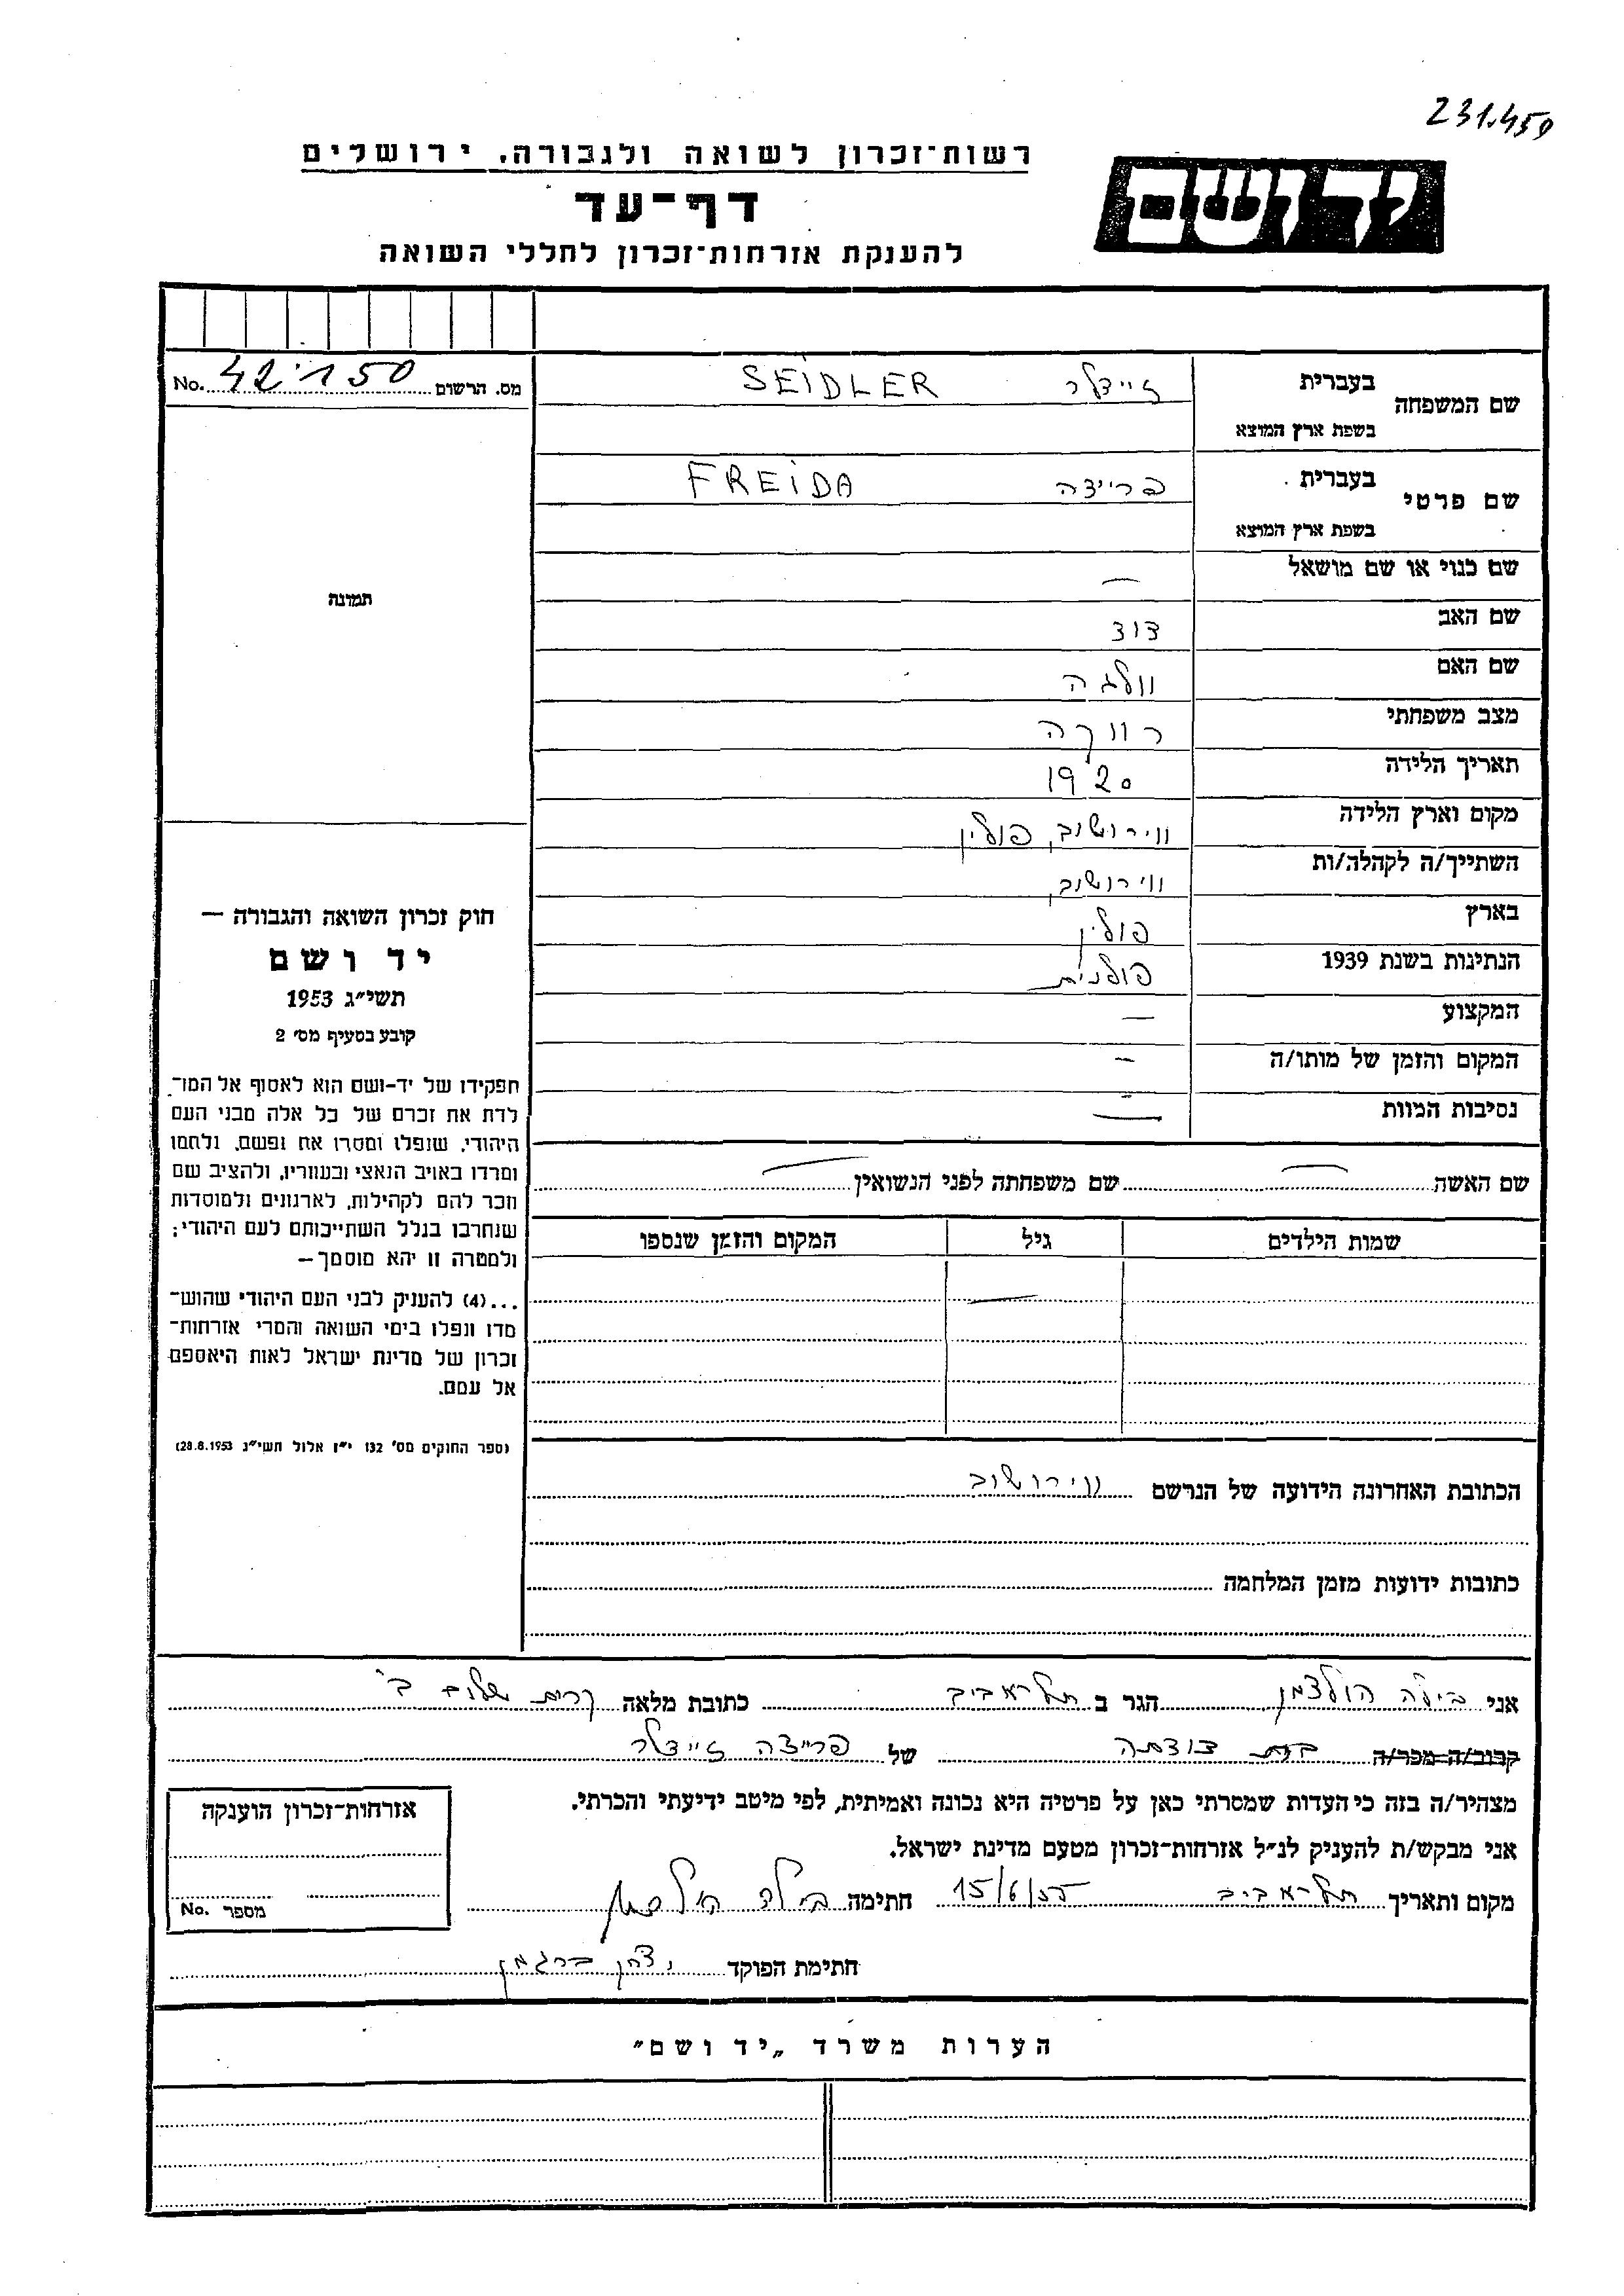 231.459
רשות-זכרון לשואה ולגבורה, ירושלים
יד ושם
דף-עד
להענקת אזרחות-זכרון לחללי השואה
מס. הרשום 42.150 No.
שם המשפחה
בעברית זיידלר SEIDLER
בשפת ארץ המוצא
שם פרטי
בעברית פריידה FREIDA
בשפת ארץ המוצא
שם כנוי או שם מושאל —
שם האב דוד
שם האם
מצב משפחתי רווקה
תאריך הלידה 1920
מקום וארץ הלידה ווירושוב, פולין
השתייך/ה לקהלה/ות ווירושוב,
בארץ פולין
הנתינות בשנת 1939 פולנית
המקצוע —
המקום והזמן של מותו/ה —
נסיבות המוות —
תמונה
חוק זכרון השואה והגבורה —
יד ושם
תשי"ג 1953
קובע בסעיף מס' 2
תפקידו של יד-ושם הוא לאסוף אל המו-
לדת את זכרם של כל אלה מבני העם
היהודי, שנפלו ומסרו את נפשם, נלחמו
ומרדו באויב הנאצי ובעוזריו, ולהציב שם
וזכר להם לקהילות, לארגונים ולמוסדות
שנחרבו בגלל השתייכותם לעם היהודי;
ולמטרה זו יהא מוסמך—
...(4) להעניק לבני העם היהודי שהוש-
מדו ונפלו בימי השואה והמרי אזרחות-
זכרון של מדינת ישראל לאות היאספם
אל עמם.
(ספר החוקים מס' 132 י"ז אלול תשי"ג 28.8.1953)
שם האשה — שם משפחתה לפני הנשואין —
שמות הילדים גיל המקום והזמן שנספו
—
הכתובת האחרונה הידועה של הנרשם ווירושוב
כתובות ידועות מזמן המלחמה
אני בילה הולצמן הגר ב תל-אביב כתובת מלאה קרית שלום ב'
קרוב/ה מכר/ה בת דודתה של פריידה זיידלר
מצהיר/ה בזה כי העדות שמסרתי כאן על פרטיה היא נכונה ואמיתית, לפי מיטב ידיעתי והכרתי.
אני מבקש/ת להעניק לנ"ל אזרחות-זכרון מטעם מדינת ישראל.
מקום ותאריך תל-אביב 15/6/55 חתימה בילה הולצמן
חתימת הפוקד ברגמן
אזרחות-זכרון הוענקה
מספר No.
הערות משרד „יד ושם"